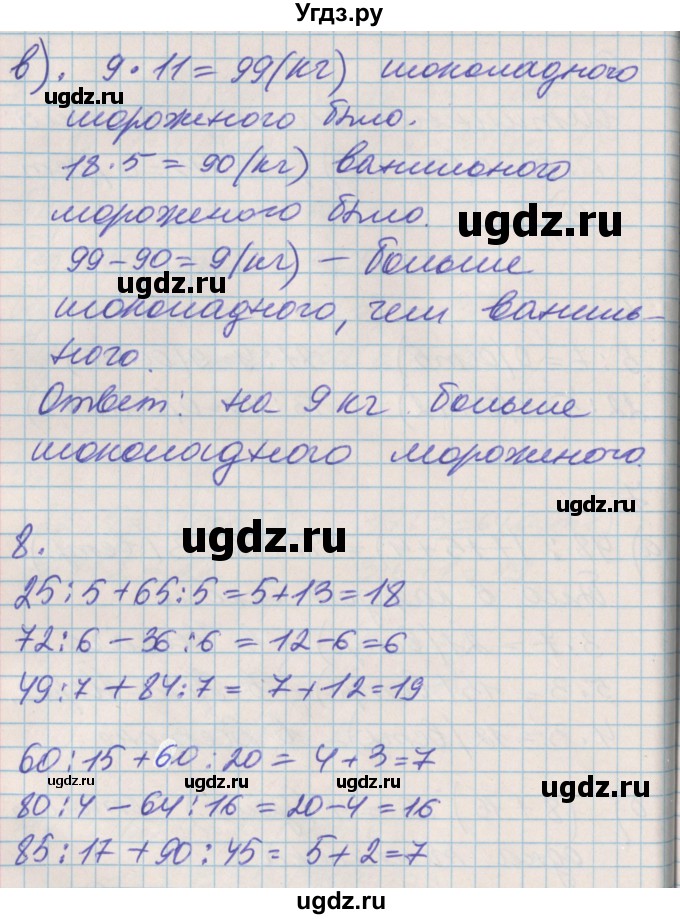 Угдз.ру
в). 9·11=99(кг) шоколадного
ugdz.ru
мороженого было.
18·5=90(кг) ванильного
мороженого было.
ugdz.ru
99-90=9(кг) - больше
ugdz.ru
шоколадного, чем ваниль-
ного.
Ответ: на 9 кг больше
шоколадного мороженого.
ugdz.ru
8.
ugdz.ru
25:5+65:5=5+13=18
72:6-36:6=12-6=6
ugdz.ru
49:7+84:7=7+12=19
60:15+60:20=4+3=7
ugdz.ru
ugdz.ru
80:4-64:16=20-4=16
85:17+90:45=5+2=7
ugdz.ru
ugdz.ru